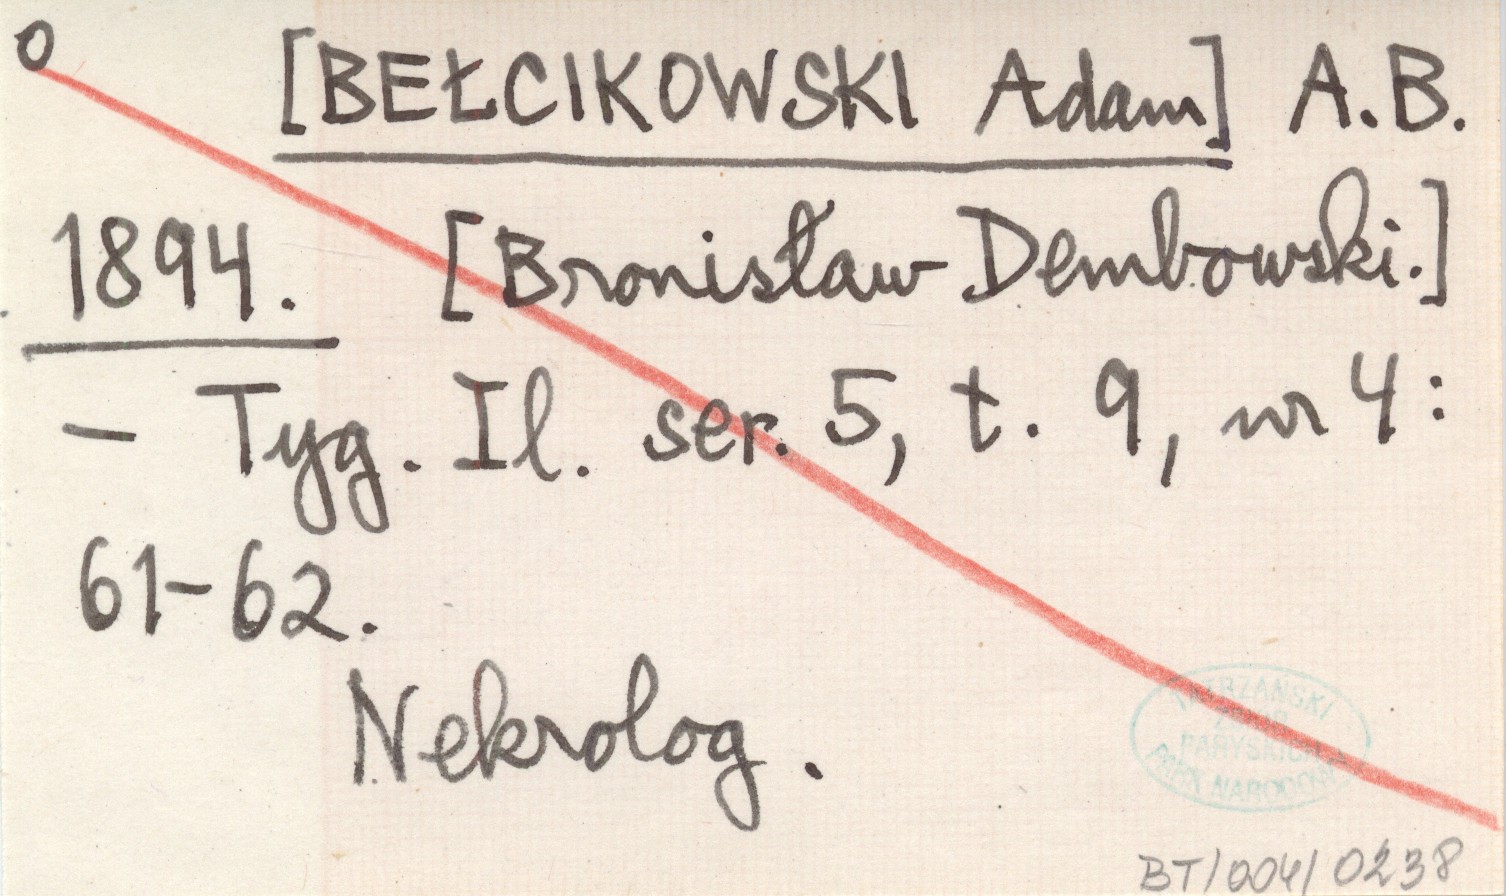 o [BEŁCIKOWSKI Adam] A.B.
1894. [Bronisław Dembowski.]
- Tyg. Il. ser. 5, t. 9, nr 4:
61-62.
Nekrolog.
TATRZAŃSKI
PARYSKICH
PARK NARODOWY
BT/004/0238